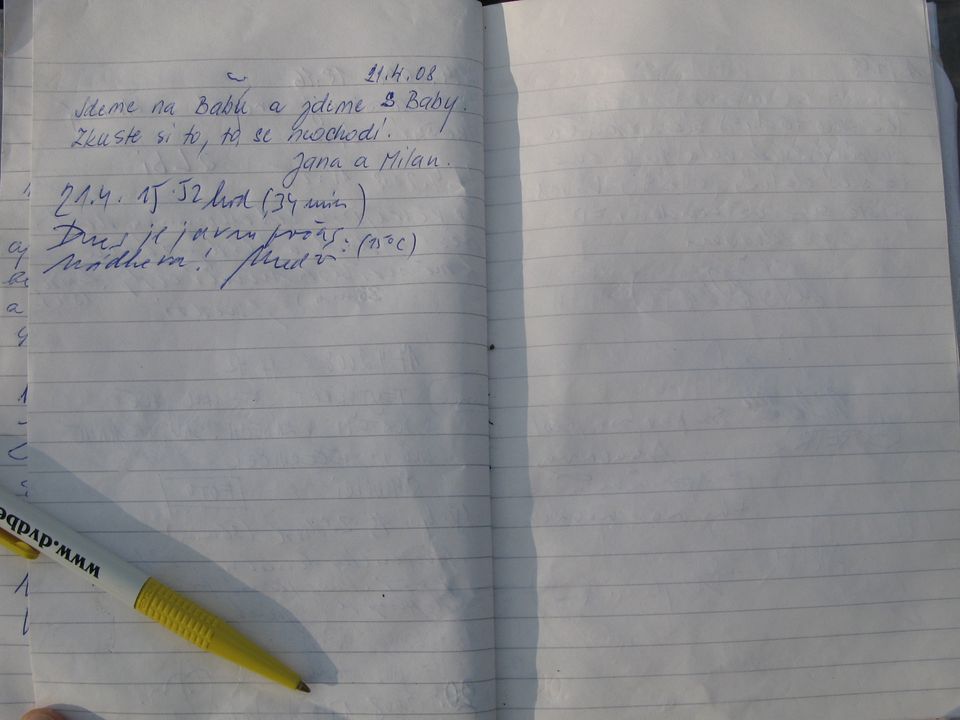 21.4.08
Jdeme na Babu a jdeme s Baby.
Zkuste si to, to se nachodí.
Jana a Milan.
21.4. 15.52 hod (34 min)
Dnes je
(15°C)
Nádhera!
www.dvdbe